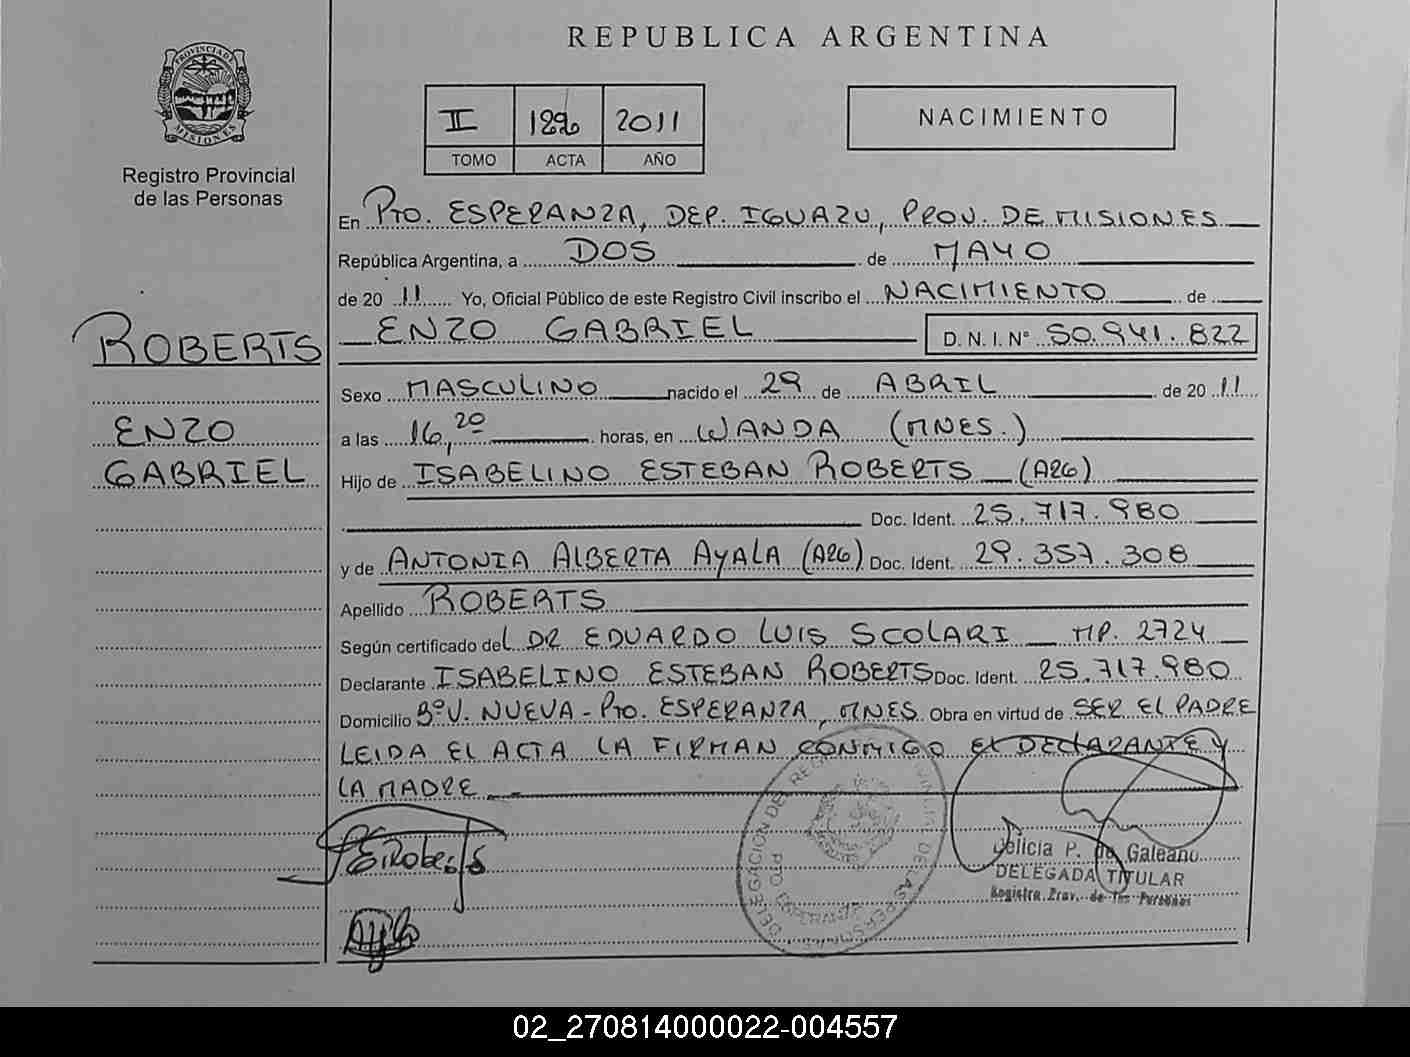 REPUBLICA ARGENTINA
PROVINCIA DE MISIONES
Registro Provincial
de las Personas
II 2011
TOMO ACTA AÑO
NACIMIENTO
En PTO. ESPERANZA, DEP. IGUAZU, PROV. DE MISIONES
República Argentina, a DOS de MAYO
de 2011 Yo, Oficial Público de este Registro Civil inscribo el NACIMIENTO de
ENZO GABRIEL D. N. I. N° 50.941.822
ROBERTS
ENZO
GABRIEL
Sexo MASCULINO nacido el 29 de ABRIL de 2011
a las 16,20 horas, en WANDA (MNES.)
Hijo de ISABELINO ESTEBAN ROBERTS (ARG)
Doc. Ident. 25.717.980
y de ANTONIA ALBERTA AYALA (ARG) Doc. Ident. 29.357.308
Apellido ROBERTS
Según certificado del DR EDUARDO LUIS SCOLARI MP. 2724
Declarante ISABELINO ESTEBAN ROBERTS Doc. Ident. 25.717.980
Domicilio B° V. NUEVA - PTO. ESPERANZA, MNES. Obra en virtud de SER EL PADRE
LEIDA EL ACTA LA FIRMAN CONMIGO EL DECLARANTE Y
LA MADRE
DELEGACION DEL REGISTRO PROVINCIAL DE LAS PERSONAS
PTO ESPERANZA
Delicia P. de Galeano
DELEGADA TITULAR
Registro Prov. de las Personas
02_270814000022-004557